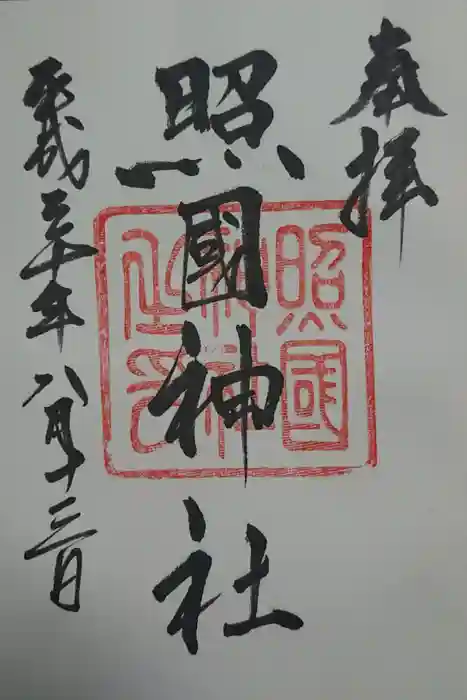 奉拝
照國神社
平成三十年八月十三日
照國
神社
之印